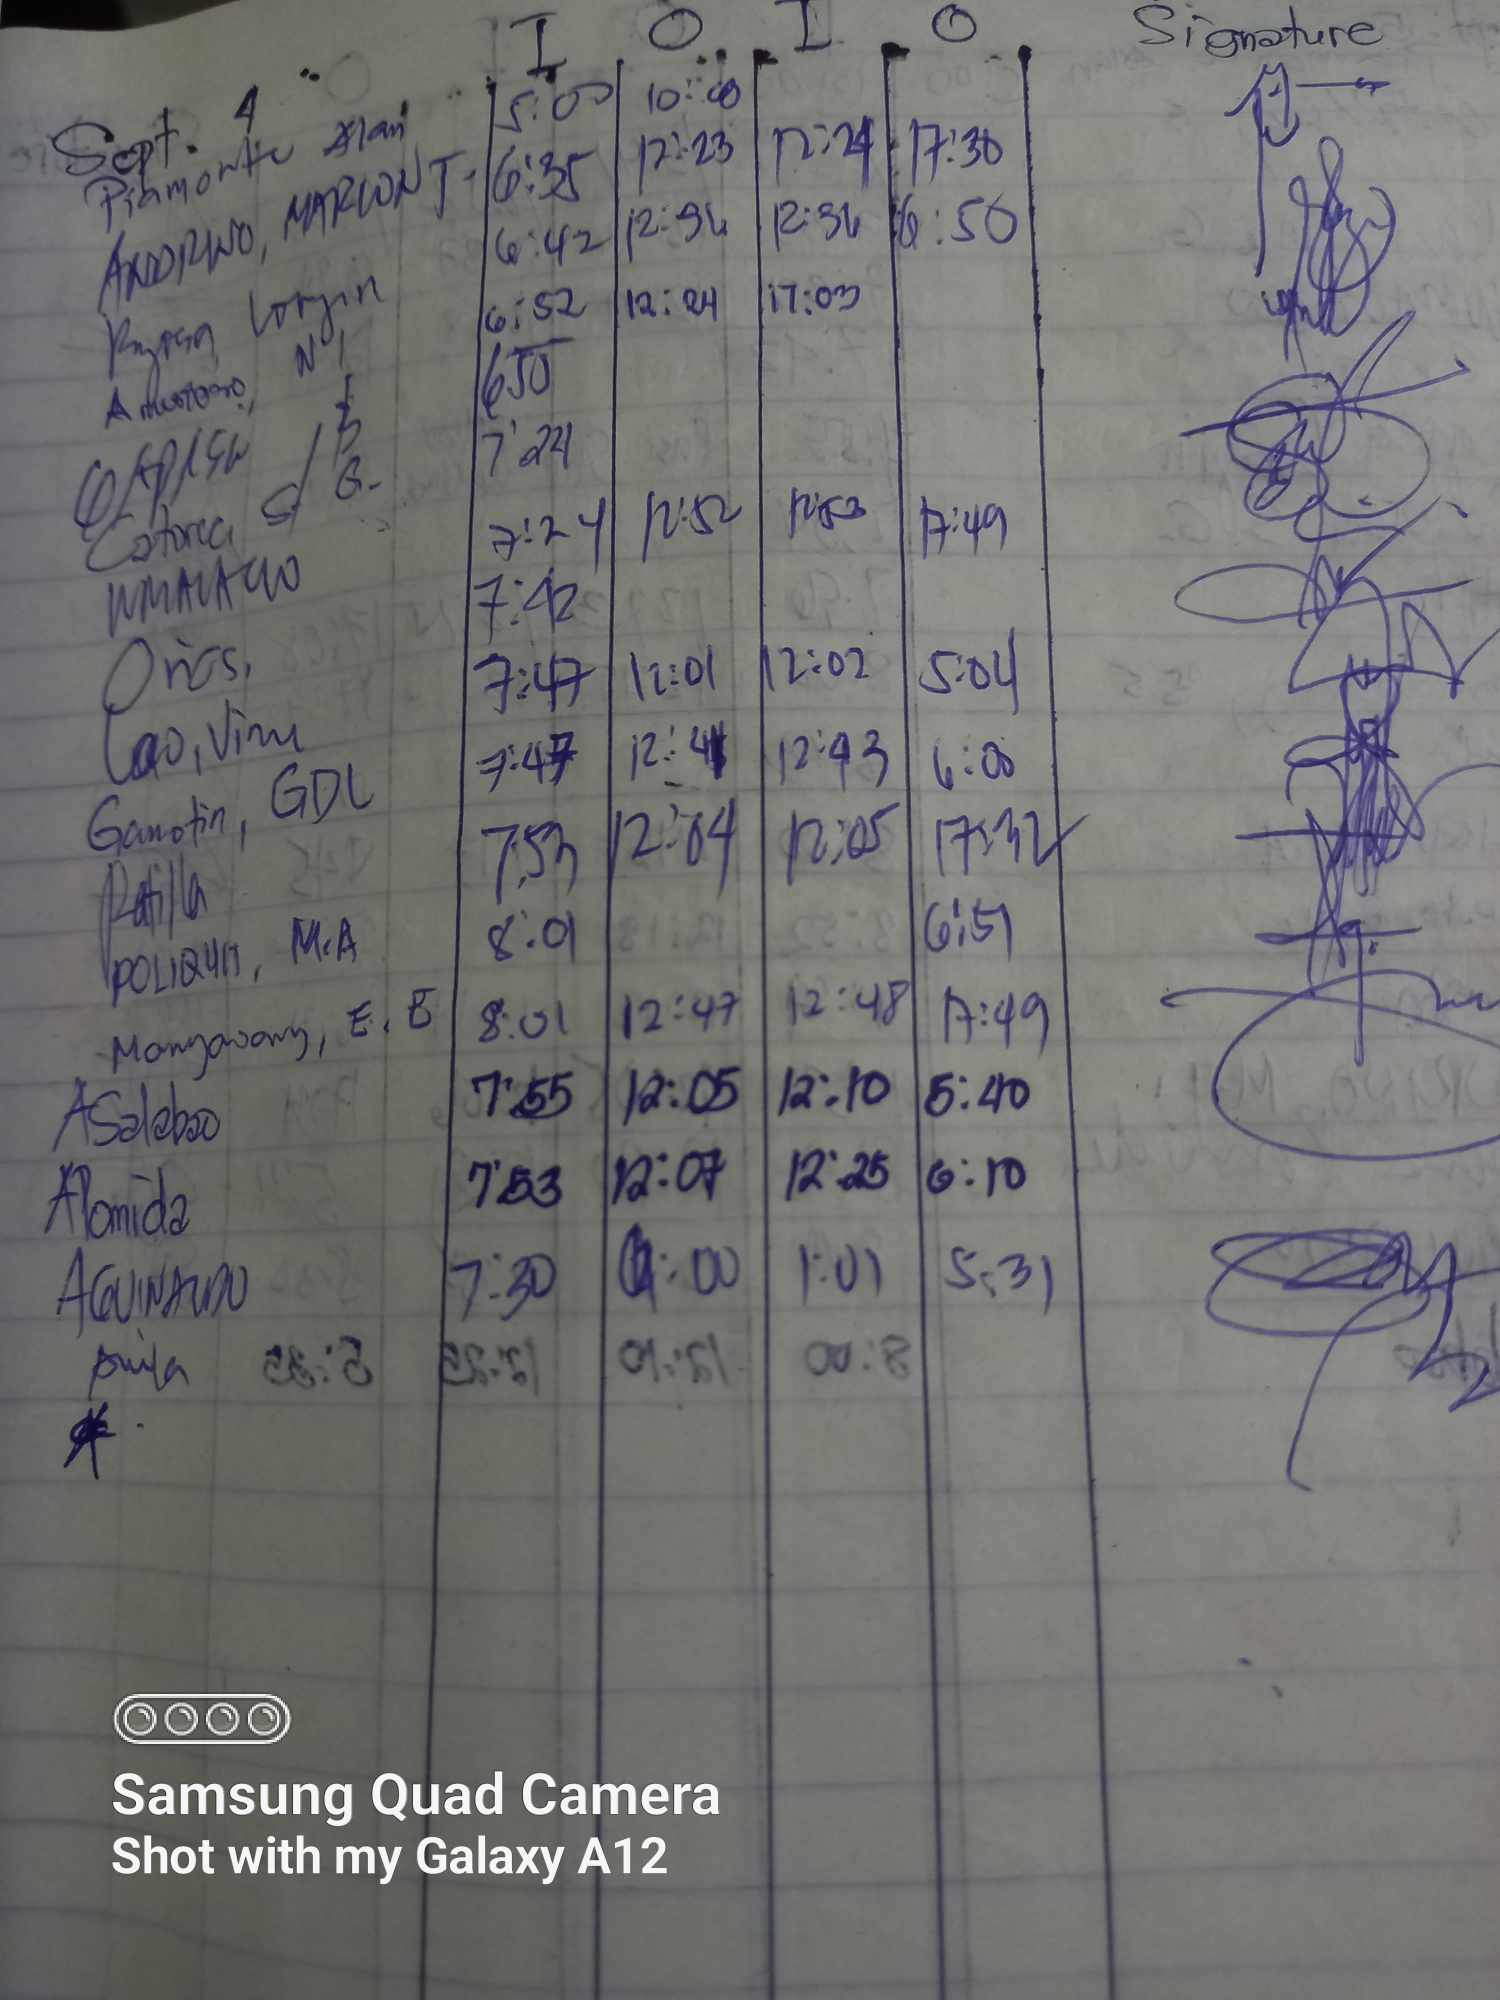 I O I O Signature
Sept. 4
Piamonte Alan 5:00 10:00
ANDORINO, MARLON J. 6:35 12:23 12:24 17:30
Lorgin 6:42 12:36 12:36 6:50
N 6:52 12:24 17:03
650
Catorce, S G. 7:24
7:24 12:52 12:53 17:49
Orios, 7:42
Cao, Vim 7:47 12:01 12:02 5:04
Gamotin, GDL 7:47 12:41 12:43 6:00
Patilla 7:53 12:04 12:05 17:32
POLIQUIT, M.A 8:01 6:51
Mangavang, E. E 8:01 12:47 12:48 17:49
ASalabao 7:55 12:05 12:10 5:40
Alomida 7:53 12:07 12:25 6:10
AGUINALDO 7:30 :00 1:01 5:31
Samsung Quad Camera
Shot with my Galaxy A12